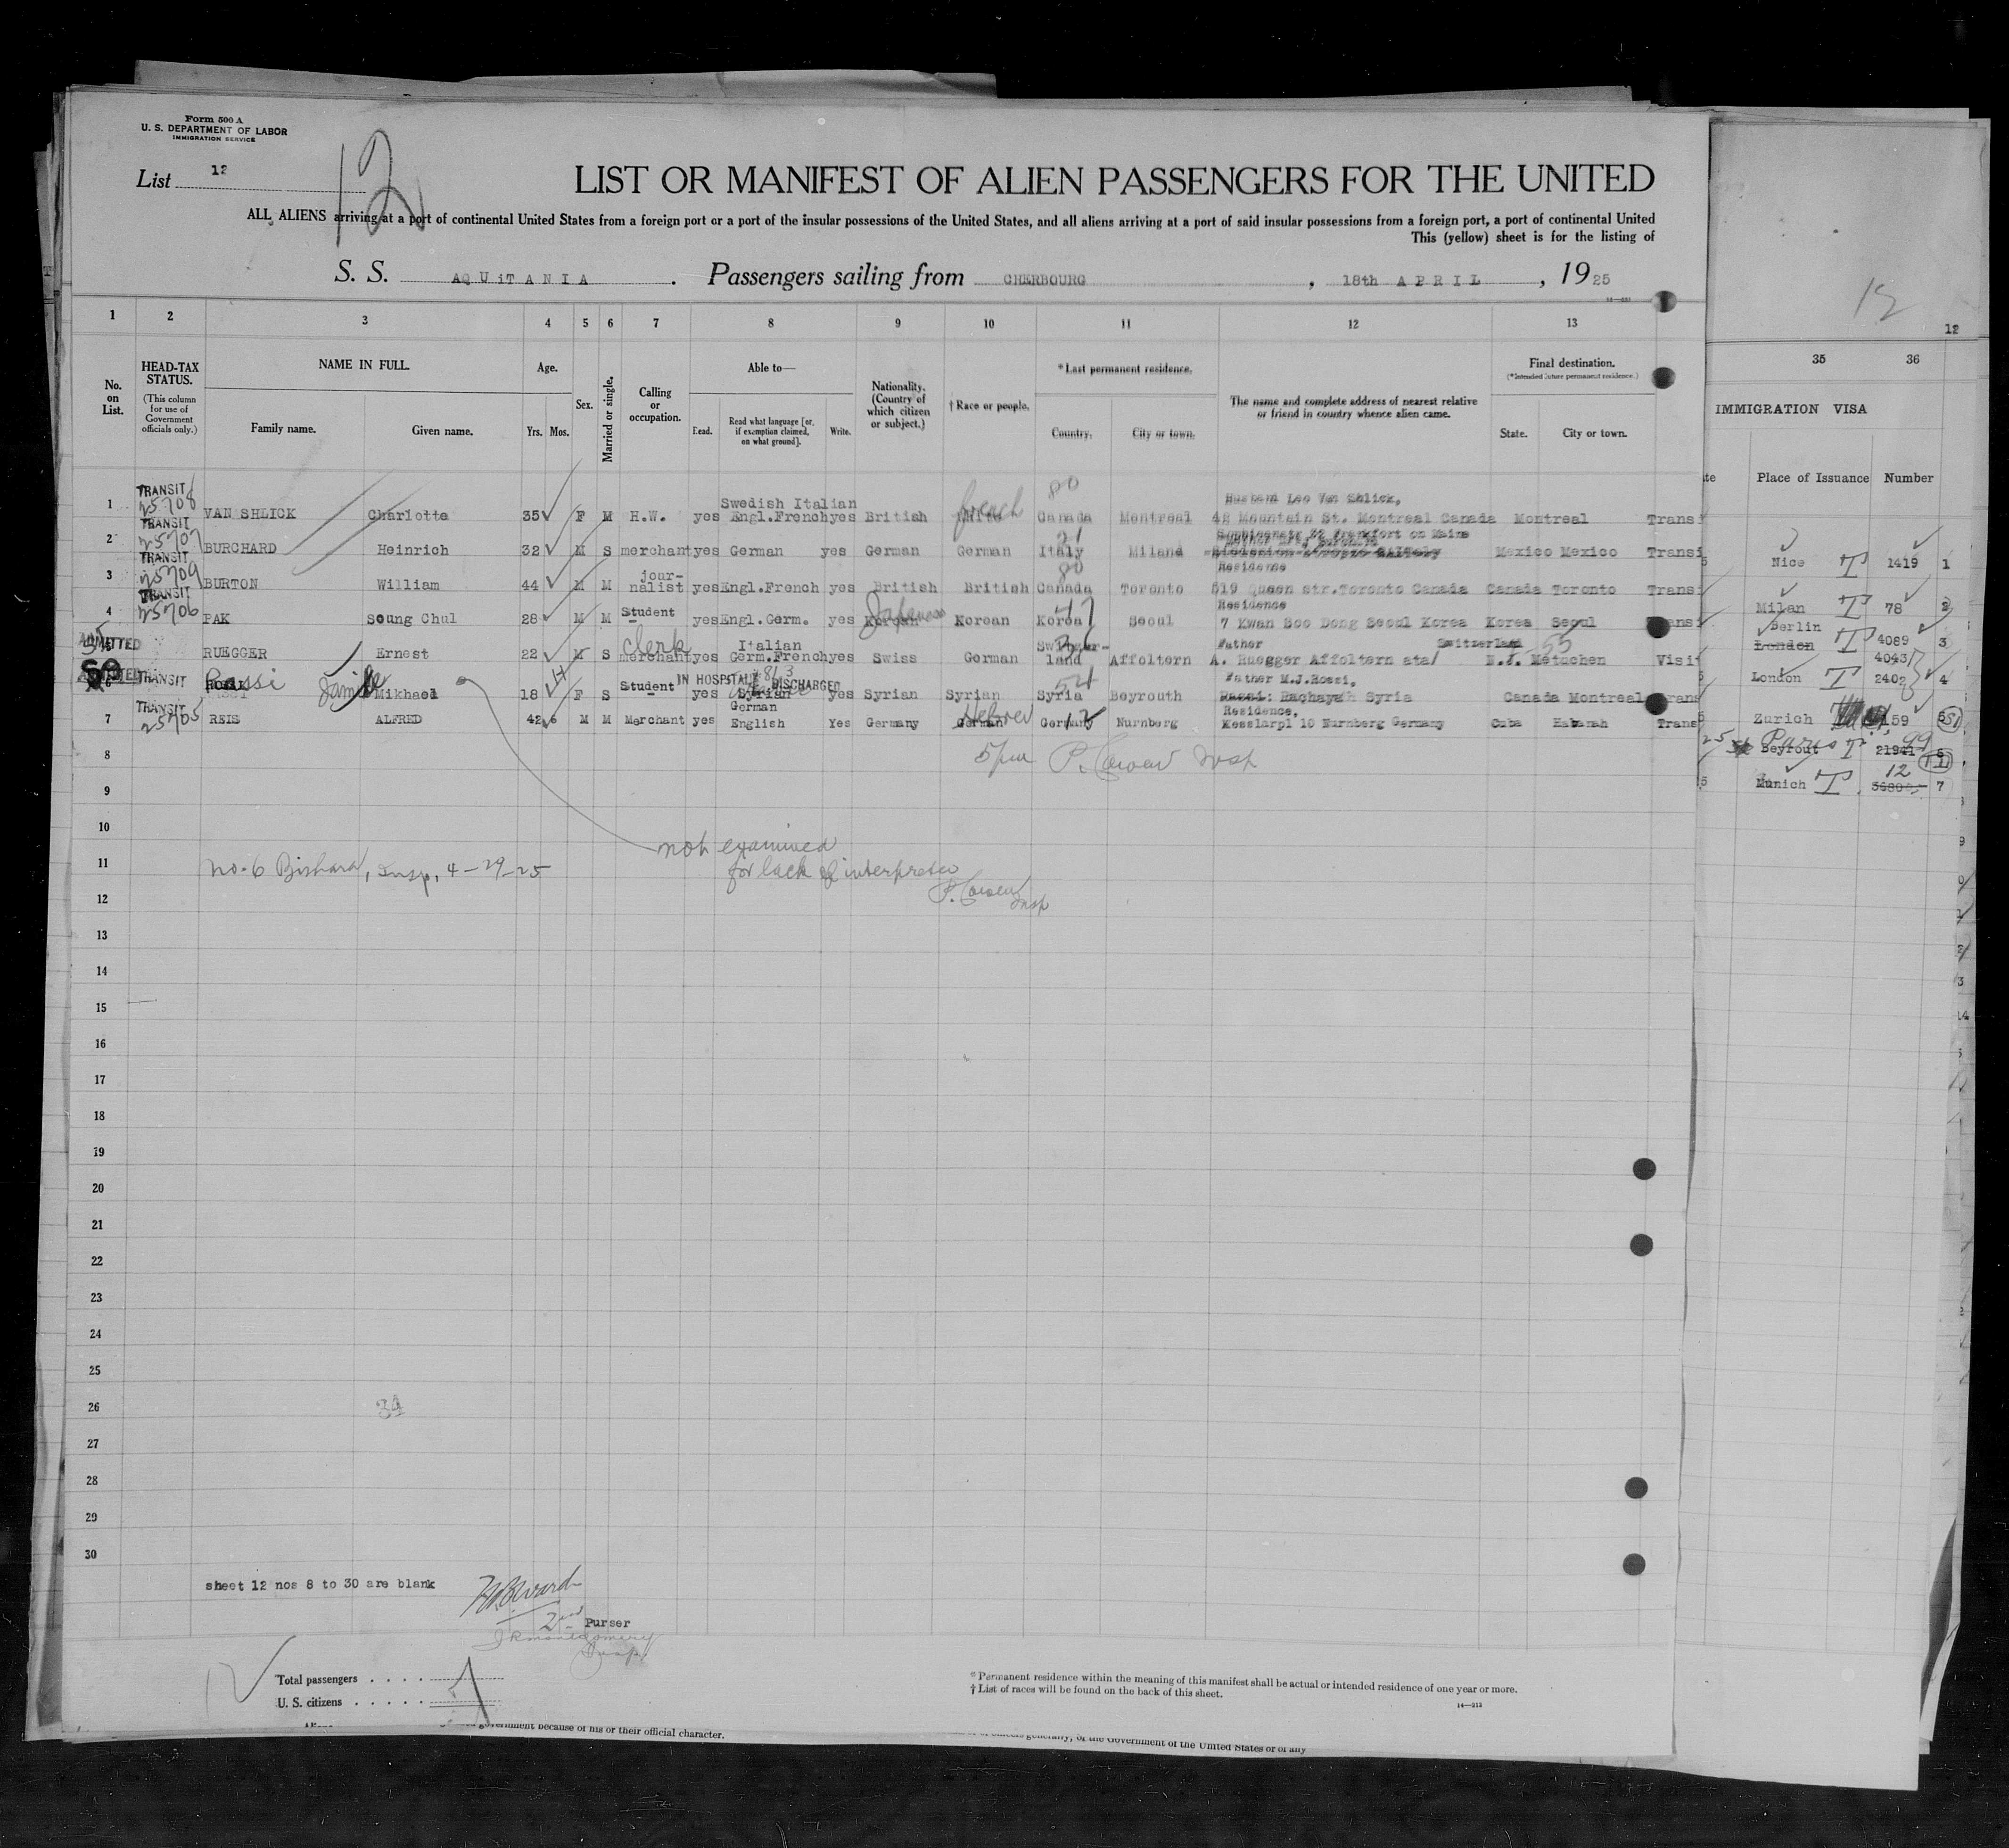 Form 500 A
U. S. DEPARTMENT OF LABOR
IMMIGRATION SERVICE
List 12
12
LIST OR MANIFEST OF ALIEN PASSENGERS FOR THE UNITED
ALL ALIENS arriving at a port of continental United States from a foreign port or a port of the insular possessions of the United States, and all aliens arriving at a port of said insular possessions from a foreign port, a port of continental United
This (yellow) sheet is for the listing of
S. S. AQUiTANIA. Passengers sailing from CHERBOURG, 18th APRIL, 1925
12
12
1 2 3 4 5 6 7 8 9 10 11 12 13 35 36
No. on List.
HEAD-TAX STATUS.
(This column for use of Government officials only.)
NAME IN FULL.
Family name. Given name.
Age.
Yrs. Mos.
Sex.
Married or single.
Calling or occupation.
Able to—
Read. Read what language [or, if exemption claimed, on what ground]. Write.
Nationality. (Country of which citizen or subject.)
† Race or people.
*Last permanent residence.
Country. City or town.
The name and complete address of nearest relative or friend in country whence alien came.
Final destination.
(*Intended future permanent residence.)
State. City or town.
IMMIGRATION VISA
Place of Issuance Number
1 TRANSIT 25708 VAN SHLICK Charlotte 35 F M H.W. yes Swedish Italian Engl.French yes British french 80 Canada Montreal Husband Leo Van Shlick, 48 Mountain St. Montreal Canada Montreal Transi
2 TRANSIT 25707 BURCHARD Heinrich 32 M S merchant yes German yes German German 21 Italy Miland Mexico Mexico Transi
3 TRANSIT 25709 BURTON William 44 M M jour-nalist yes Engl.French yes British British 80 Canada Toronto Residence 519 Queen str.Toronto Canada Canada Toronto Transi
4 TRANSIT 25706 PAK Soung Chul 28 M M Student yes Engl.Germ. yes Korean Japanese Korean 47 Korea Seoul Residence 7 Kwan Boo Dong Seoul Korea Korea Seoul Transi
5 ADMITTED RUEGGER Ernest 22 M S clerk merchant yes Italian Germ.French yes Swiss German Switzer-land Affoltern Father A. Ruegger Affoltern ata/ Switzerland 55 N.J. Metuchen Visit
6 TRANSIT Rassi Jamile Mikhael 18 F S Student yes IN HOSPITAL DISCHARGED Syrian yes Syrian Syrian 54 Syria Beyrouth Father M.J.Rossi, Rachaya Syria Canada Montreal Trans
7 TRANSIT 25705 REIS ALFRED 42 6 M M Merchant yes German English Yes Germany German Hebrew Germany Nurnberg Residence, Kesslarpl 10 Nurnberg Germany Cuba Habanah Trans
Nice T 1419 1
Milan T 78 2
Berlin London T 4089 3
4043
London T 2402 4
Zurich 159 5
Paris Beyrout T 99 21941 6
Munich T 12 7
8
5 pm P. Carew Insp
9
10
not examined
for lack of interpreter
P. Carew Insp
11 No. 6 Bishara, Insp, 4-29-25
12
13
14
15
16
17
18
19
20
21
22
23
24
25
26 34
27
28
29
30
sheet 12 nos 8 to 30 are blank
2nd Purser
J R Montgomery
Insp
Total passengers . . . .
U. S. citizens . . . . .
* Permanent residence within the meaning of this manifest shall be actual or intended residence of one year or more.
† List of races will be found on the back of this sheet.
14—213
government because of his or their official character.
of the Government of the United States or of any